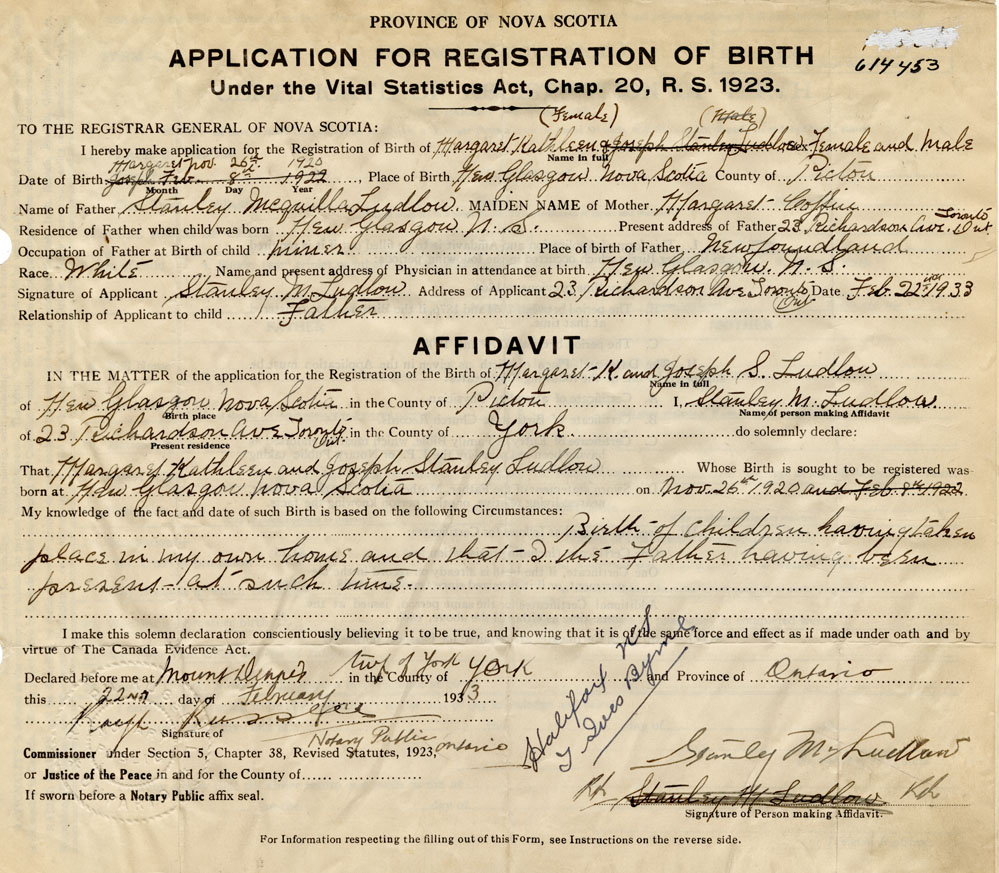 PROVINCE OF NOVA SCOTIA
APPLICATION FOR REGISTRATION OF BIRTH
614453
Under the Vital Statistics Act, Chap. 20, R. S. 1923.
(Female) (Male)
TO THE REGISTRAR GENERAL OF NOVA SCOTIA:
I hereby make application for the Registration of Birth of Margaret Kathleen & Joseph Stanley Ludlow Sex Female and Male
Name in full
Margaret Nov. 26th 1920
Date of Birth Joseph Feb. 8th 1922, Place of Birth New Glasgow Nova Scotia County of Picton
Month Day Year
Name of Father Stanley Mcquilla Ludlow MAIDEN NAME of Mother Margaret Coffin
Residence of Father when child was born New Glasgow N. S. Present address of Father 23 Richardson Ave. Toronto Ont.
Occupation of Father at Birth of child Miner Place of birth of Father Newfoundland
Race White Name and present address of Physician in attendance at birth New Glasgow. N. S.
Signature of Applicant Stanley M. Ludlow Address of Applicant 23 Richardson Ave Toronto Ont Date Feb. 22nd 1933
Relationship of Applicant to child Father
AFFIDAVIT
IN THE MATTER of the application for the Registration of the Birth of Margaret K. and Joseph S. Ludlow
Name in full
of New Glasgow Nova Scotia in the County of Picton I, Stanley M. Ludlow
Birth place Name of person making Affidavit
of 23 Richardson Ave Toronto Ont in the County of York do solemnly declare:
Present residence
That Margaret Kathleen and Joseph Stanley Ludlow Whose Birth is sought to be registered was
born at New Glasgow Nova Scotia on Nov. 26th 1920 and Feb. 8th 1922
My knowledge of the fact and date of such Birth is based on the following Circumstances:
Birth of children having taken
place in my own home and that I the Father having been
present at such time.
I make this solemn declaration conscientiously believing it to be true, and knowing that it is of the same force and effect as if made under oath and by
virtue of The Canada Evidence Act.
Declared before me at Mount Dennis Twp of York in the County of York and Province of Ontario
this 22nd day of February 1933
Signature of
Notary Public Ontario
Commissioner under Section 5, Chapter 38, Revised Statutes, 1923,
or Justice of the Peace in and for the County of
If sworn before a Notary Public affix seal.
Halifax N S
Byrne
Stanley Mc Ludlow
Stanley M Ludlow
Signature of Person making Affidavit.
For Information respecting the filling out of this Form, see Instructions on the reverse side.